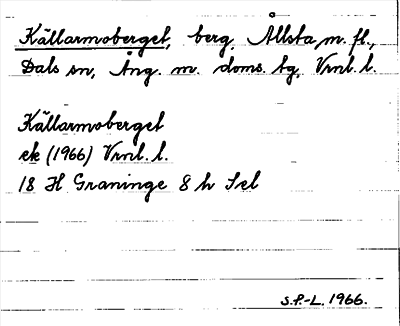 Källarmoberget, berg, Ållsta m. fl.,
Dals sn, Ång. m. doms. tg, Vrnl. l.
Källarmoberget
ek (1966) Vrnl. l.
18 H Graninge 8 h Sel
S.P.-L. 1966.